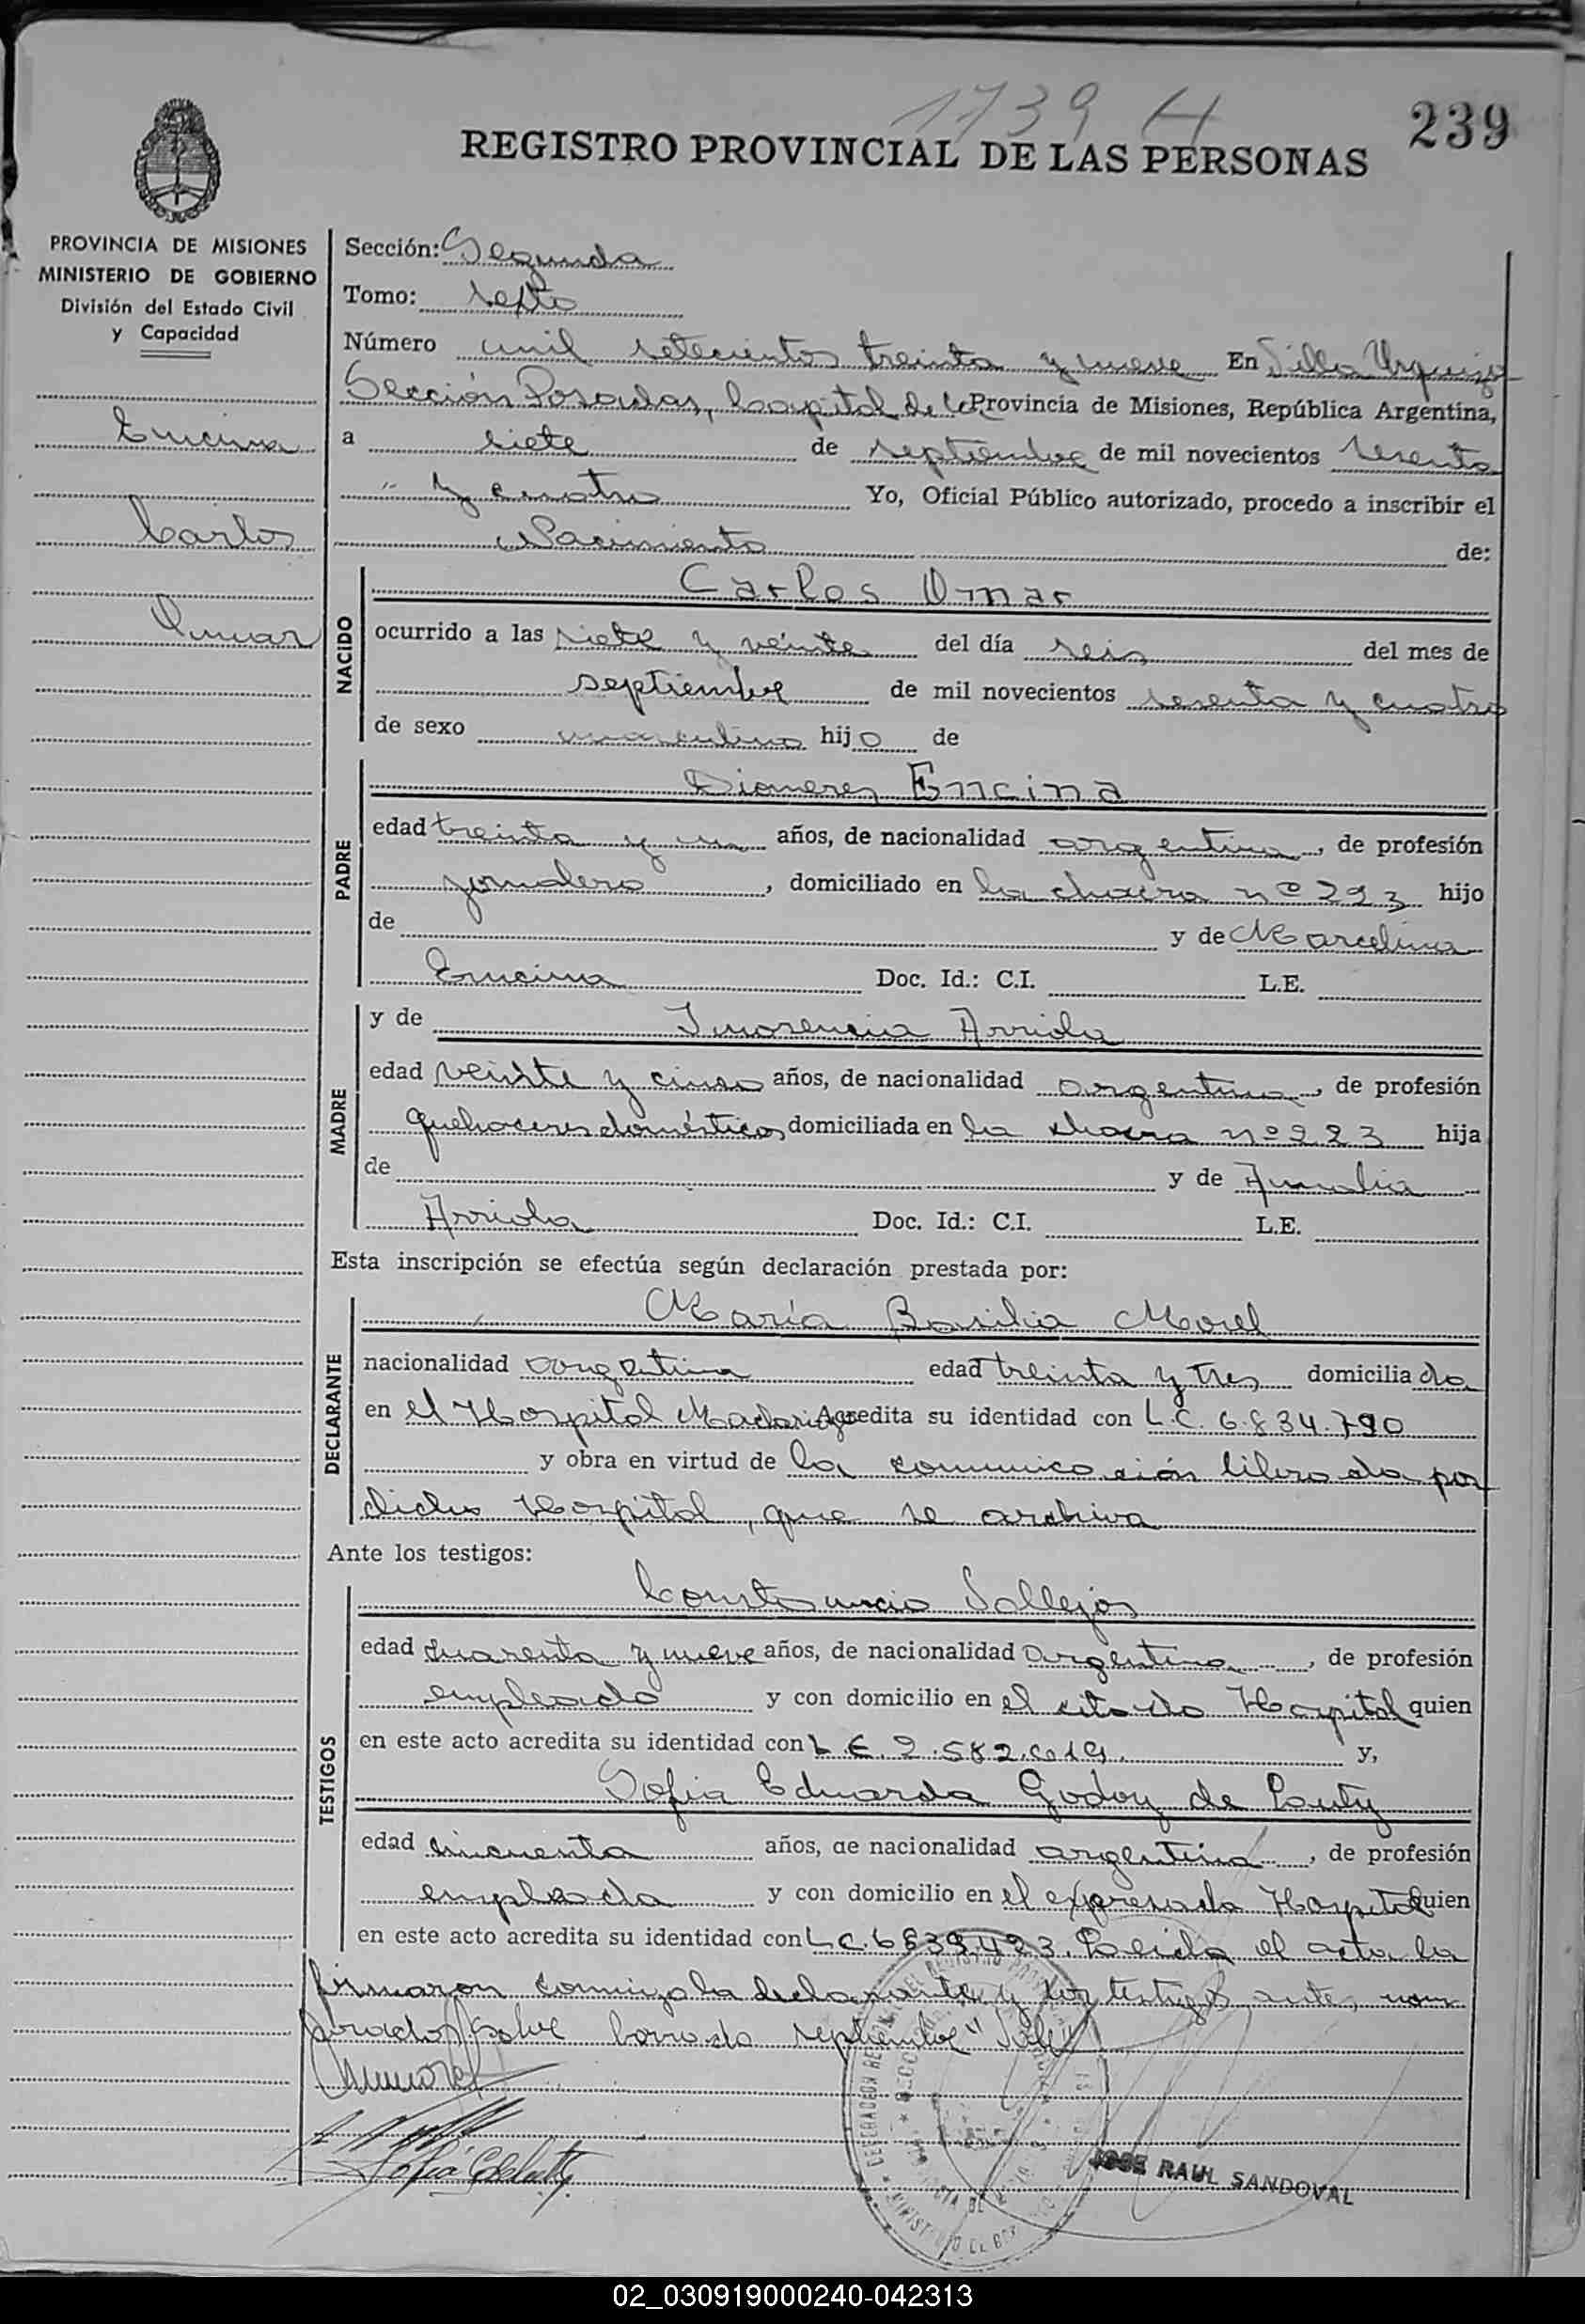 1739 H
239
REGISTRO PROVINCIAL DE LAS PERSONAS
PROVINCIA DE MISIONES
MINISTERIO DE GOBIERNO
División del Estado Civil
y Capacidad
Encina
Carlos
Omar
Sección: Segunda
Tomo: sexto
Número mil setecientos treinta y nueve En Villa Urquiza
Sección Posadas, Capital de la Provincia de Misiones, República Argentina,
a siete de septiembre de mil novecientos sesenta
y cuatro Yo, Oficial Público autorizado, procedo a inscribir el
Nacimiento de:
NACIDO
Carlos Omar
ocurrido a las siete y veinte del día seis del mes de
septiembre de mil novecientos sesenta y cuatro
de sexo masculino hijo de
PADRE
Encina
edad treinta y un años, de nacionalidad argentina, de profesión
jornalero, domiciliado en la chacra nº 223 hijo
de y de Marcelina
Encina Doc. Id.: C.I. L.E.
MADRE
y de Inocencia Arriola
edad veinte y cinco años, de nacionalidad argentina, de profesión
quehaceres domésticos domiciliada en la chacra nº 223 hija
de y de Amalia
Arriola Doc. Id.: C.I. L.E.
Esta inscripción se efectúa según declaración prestada por:
DECLARANTE
María Basilia Morel
nacionalidad argentina edad treinta y tres domiciliada
en el Hospital Madariaga Acredita su identidad con L.C. 6.834.790
y obra en virtud de la comunicación librada por
dicho Hospital, que se archiva
Ante los testigos:
TESTIGOS
Constancio Vallejos
edad cuarenta y nueve años, de nacionalidad argentina, de profesión
empleado y con domicilio en el citado Hospital quien
en este acto acredita su identidad con L.E. 2.582.019. y,
Sofia Eduarda Godoy de
edad cincuenta años, de nacionalidad argentina, de profesión
empleada y con domicilio en el expresado Hospital quien
en este acto acredita su identidad con L.C. 6839.423. Leida el acta la
firmaron conmigo la declarante y los testigos antes nom
brados Sobre borrado septiembre" Vale"
JOSE RAUL SANDOVAL
02_030919000240-042313